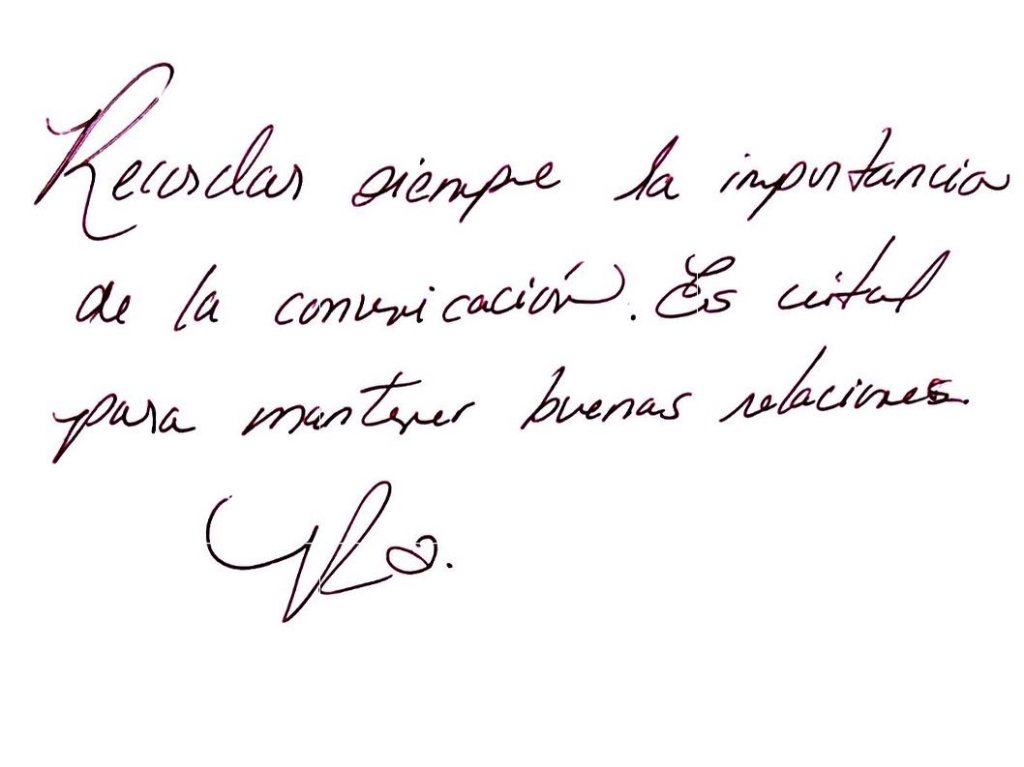 Recordar siempre la importancia
de la comunicación. Es vital
para mantener buenas relaciones.